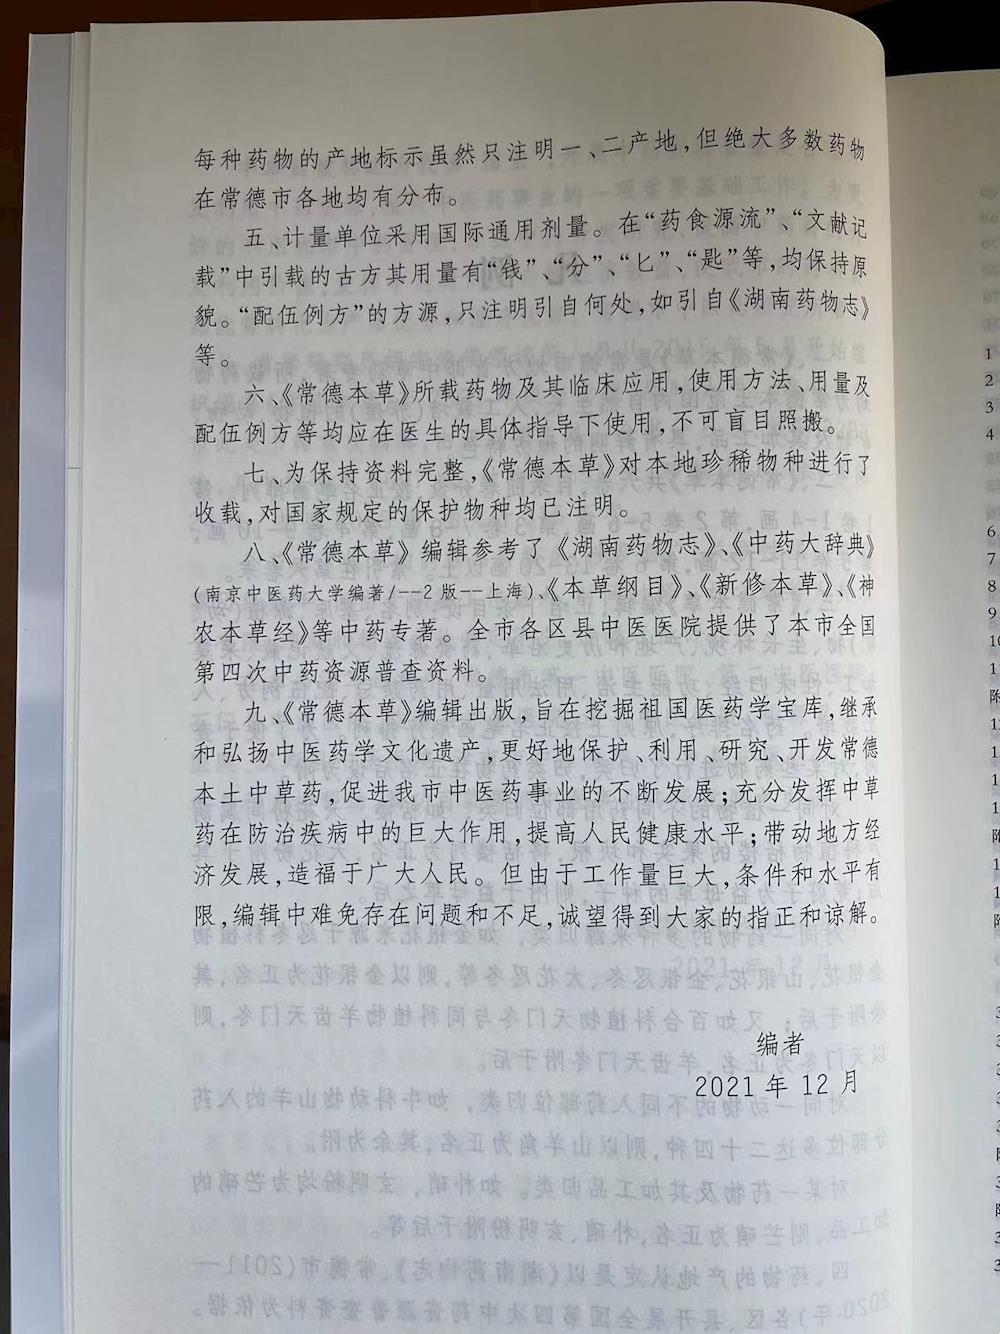 每种药物的产地标示虽然只注明一、二产地，但绝大多数药物
在常德市各地均有分布。
五、计量单位采用国际通用剂量。在“药食源流”、“文献记
载”中引载的古方其用量有“钱”、“分”、“匕”、“匙”等，均保持原
貌。“配伍例方”的方源，只注明引自何处，如引自《湖南药物志》
等。
六、《常德本草》所载药物及其临床应用，使用方法、用量及
配伍例方等均应在医生的具体指导下使用，不可盲目照搬。
七、为保持资料完整，《常德本草》对本地珍稀物种进行了
收载，对国家规定的保护物种均已注明。
八、《常德本草》编辑参考了《湖南药物志》、《中药大辞典》
(南京中医药大学编著/--2版--上海)、《本草纲目》、《新修本草》、《神
农本草经》等中药专著。全市各区县中医医院提供了本市全国
第四次中药资源普查资料。
九、《常德本草》编辑出版，旨在挖掘祖国医药学宝库，继承
和弘扬中医药学文化遗产，更好地保护、利用、研究、开发常德
本土中草药，促进我市中医药事业的不断发展；充分发挥中草
药在防治疾病中的巨大作用，提高人民健康水平；带动地方经
济发展，造福于广大人民。但由于工作量巨大，条件和水平有
限，编辑中难免存在问题和不足，诚望得到大家的指正和谅解。
编者
2021年12月